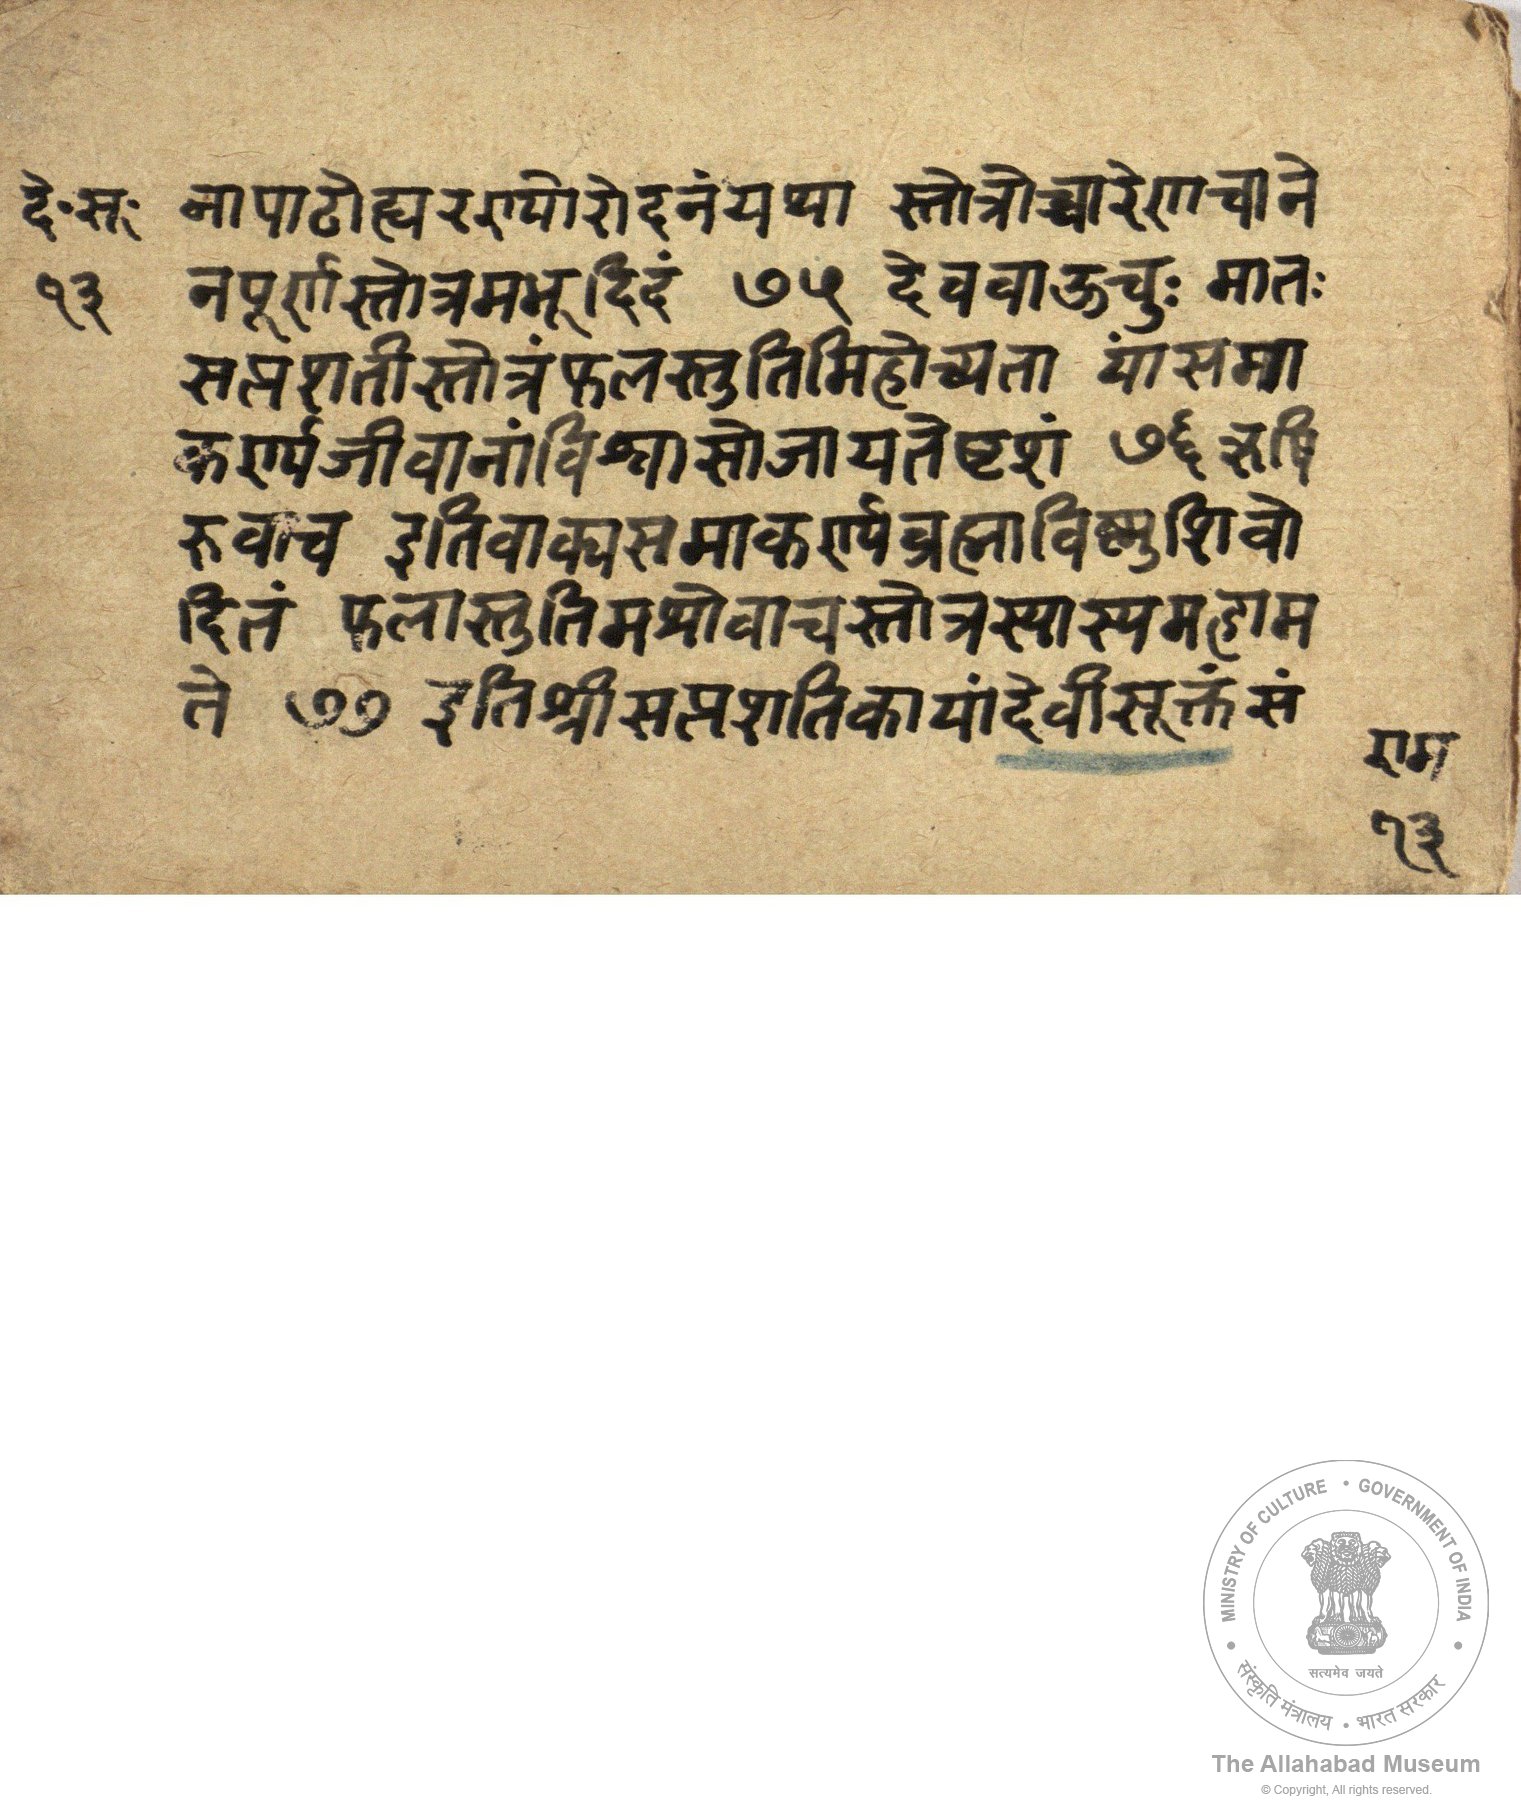 दे॰सू॰ नापाठोह्यरण्योरोदनंयथा स्तोत्रोच्चारेणचाने
१३ नपूर्णस्तोत्रमभूदिदं ७५ देववाऊचुः मातः
सप्तशतीस्तोत्रंफलस्तुतिमिहोच्यता यांसमा
कर्ण्यजीवानांविश्वासोजायतेष्टशं ७६ ऋषि
रुवाच इतिवाक्यसमाकर्ण्यब्रह्माविष्णुशिवो
दितं फलास्तुतिमश्रोवाचस्तोत्रस्यास्यमहाम
ते ७७ इतिश्रीसप्तशतिकायांदेवीसूक्तंसं
राम
१३
MINISTRY OF CULTURE • GOVERNMENT OF INDIA
सत्यमेव जयते
संस्कृति मंत्रालय • भारत सरकार
The Allahabad Museum
© Copyright, All rights reserved.